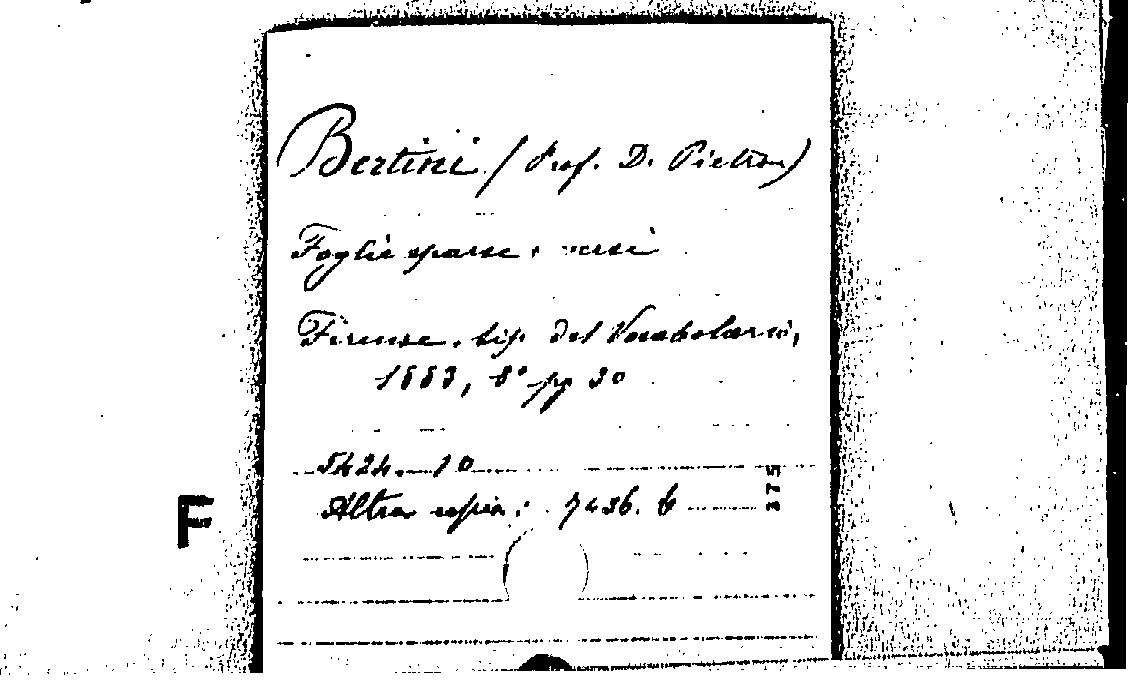 Bertini (Prof. D. Pietro)
Foglie sparse, versi
Firenze, tip. del Vocabolario,
1883, 8° pp 30
5424. 10
Altra copia: 7436. 6
375
F